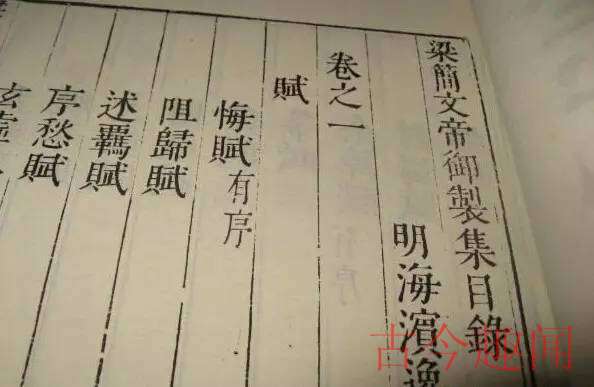 梁簡文帝御製集目錄
明海濱逸
卷之一
賦
悔賦有序
阻歸賦
述羈賦
序愁賦
玄虛
古今趣闻